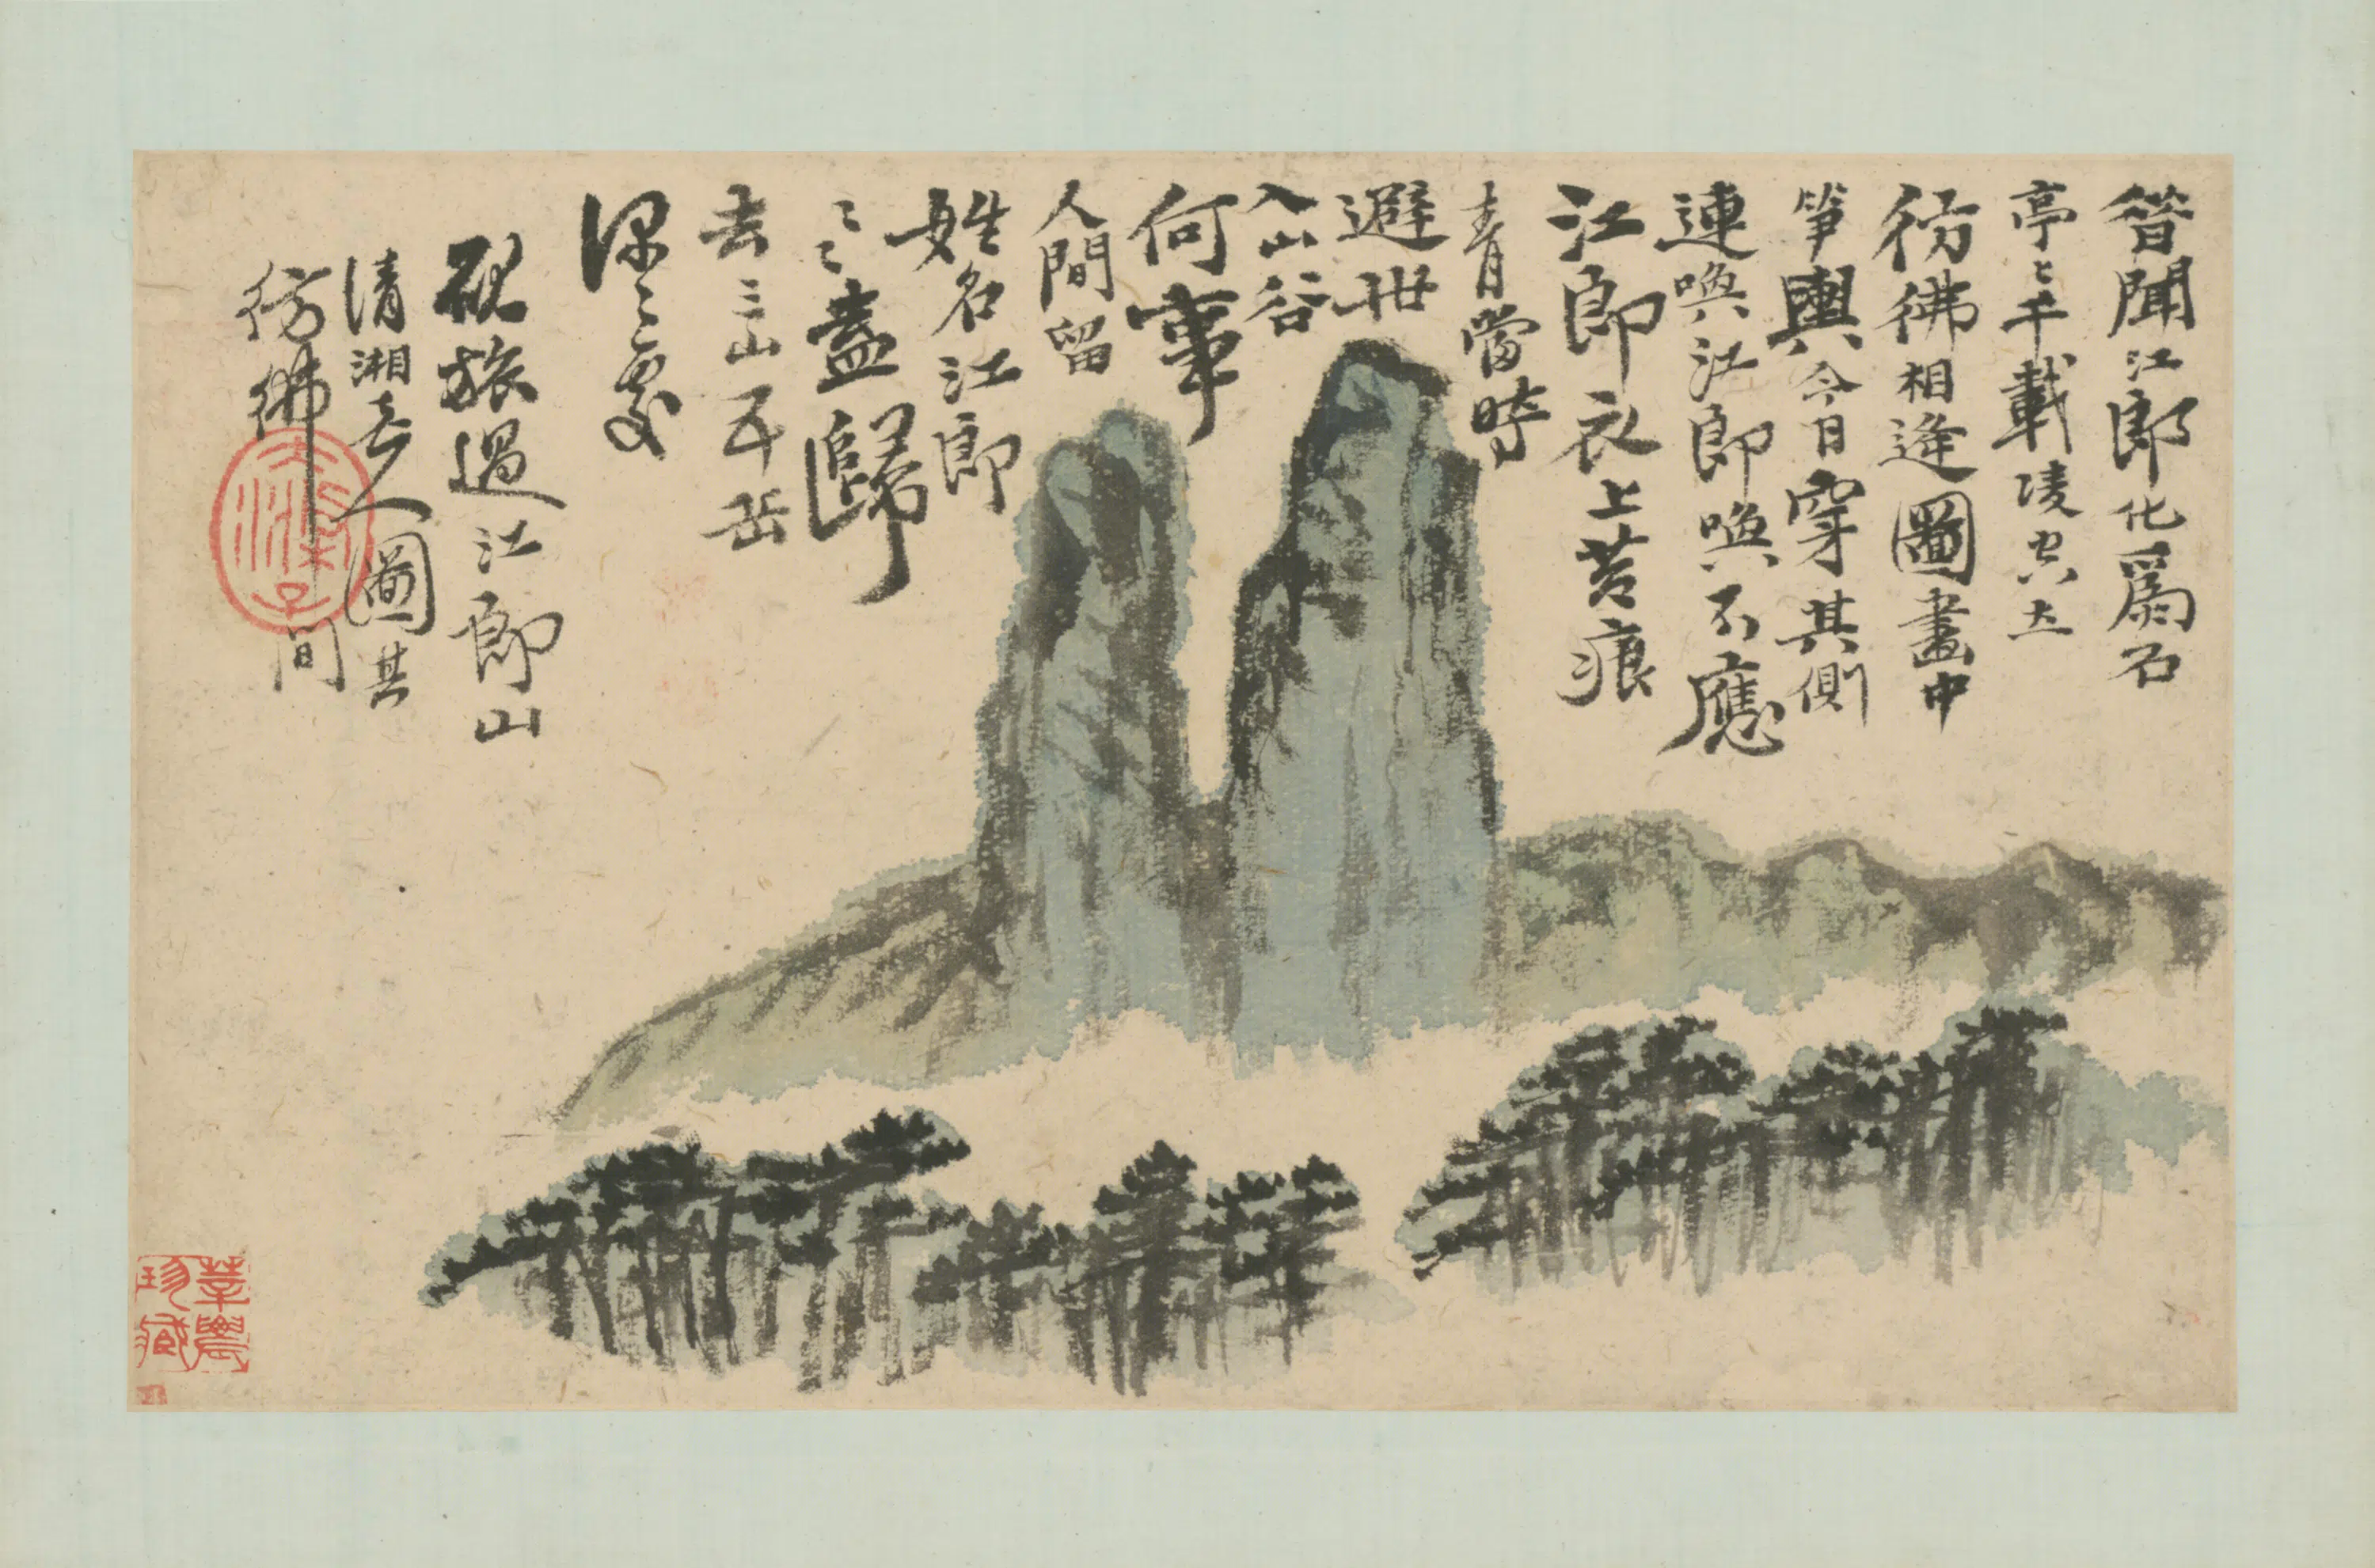 昔聞江郎化爲石
亭〻千載凌空立
彷彿相逢圖畫中
笋輿今日穿其側
連喚江郎喚不應
江郎衣上苔痕
青當時
避世
入山谷
何事
人間留
姓名江郎
〻〻盍歸
去三山五岳
深〻處
硯旅過江郎山
清湘老人圖其
彷彿間
大滌子
莘農
珍藏